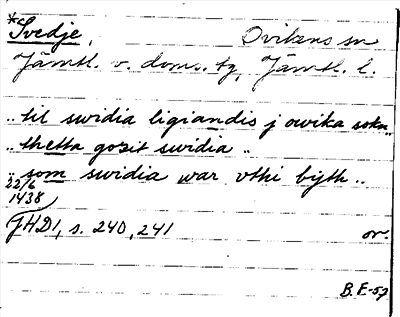 *Svedje, Ovikens sn
Jämtl. v. doms. tg, Jämtl. l.
.. til swidia ligiandis j owika sokn..
.. thetta gozit swidia ..
.. som swidia war vthi byth ..
22/6
1438
JHD1, s. 240, 241 or.
B.E-57